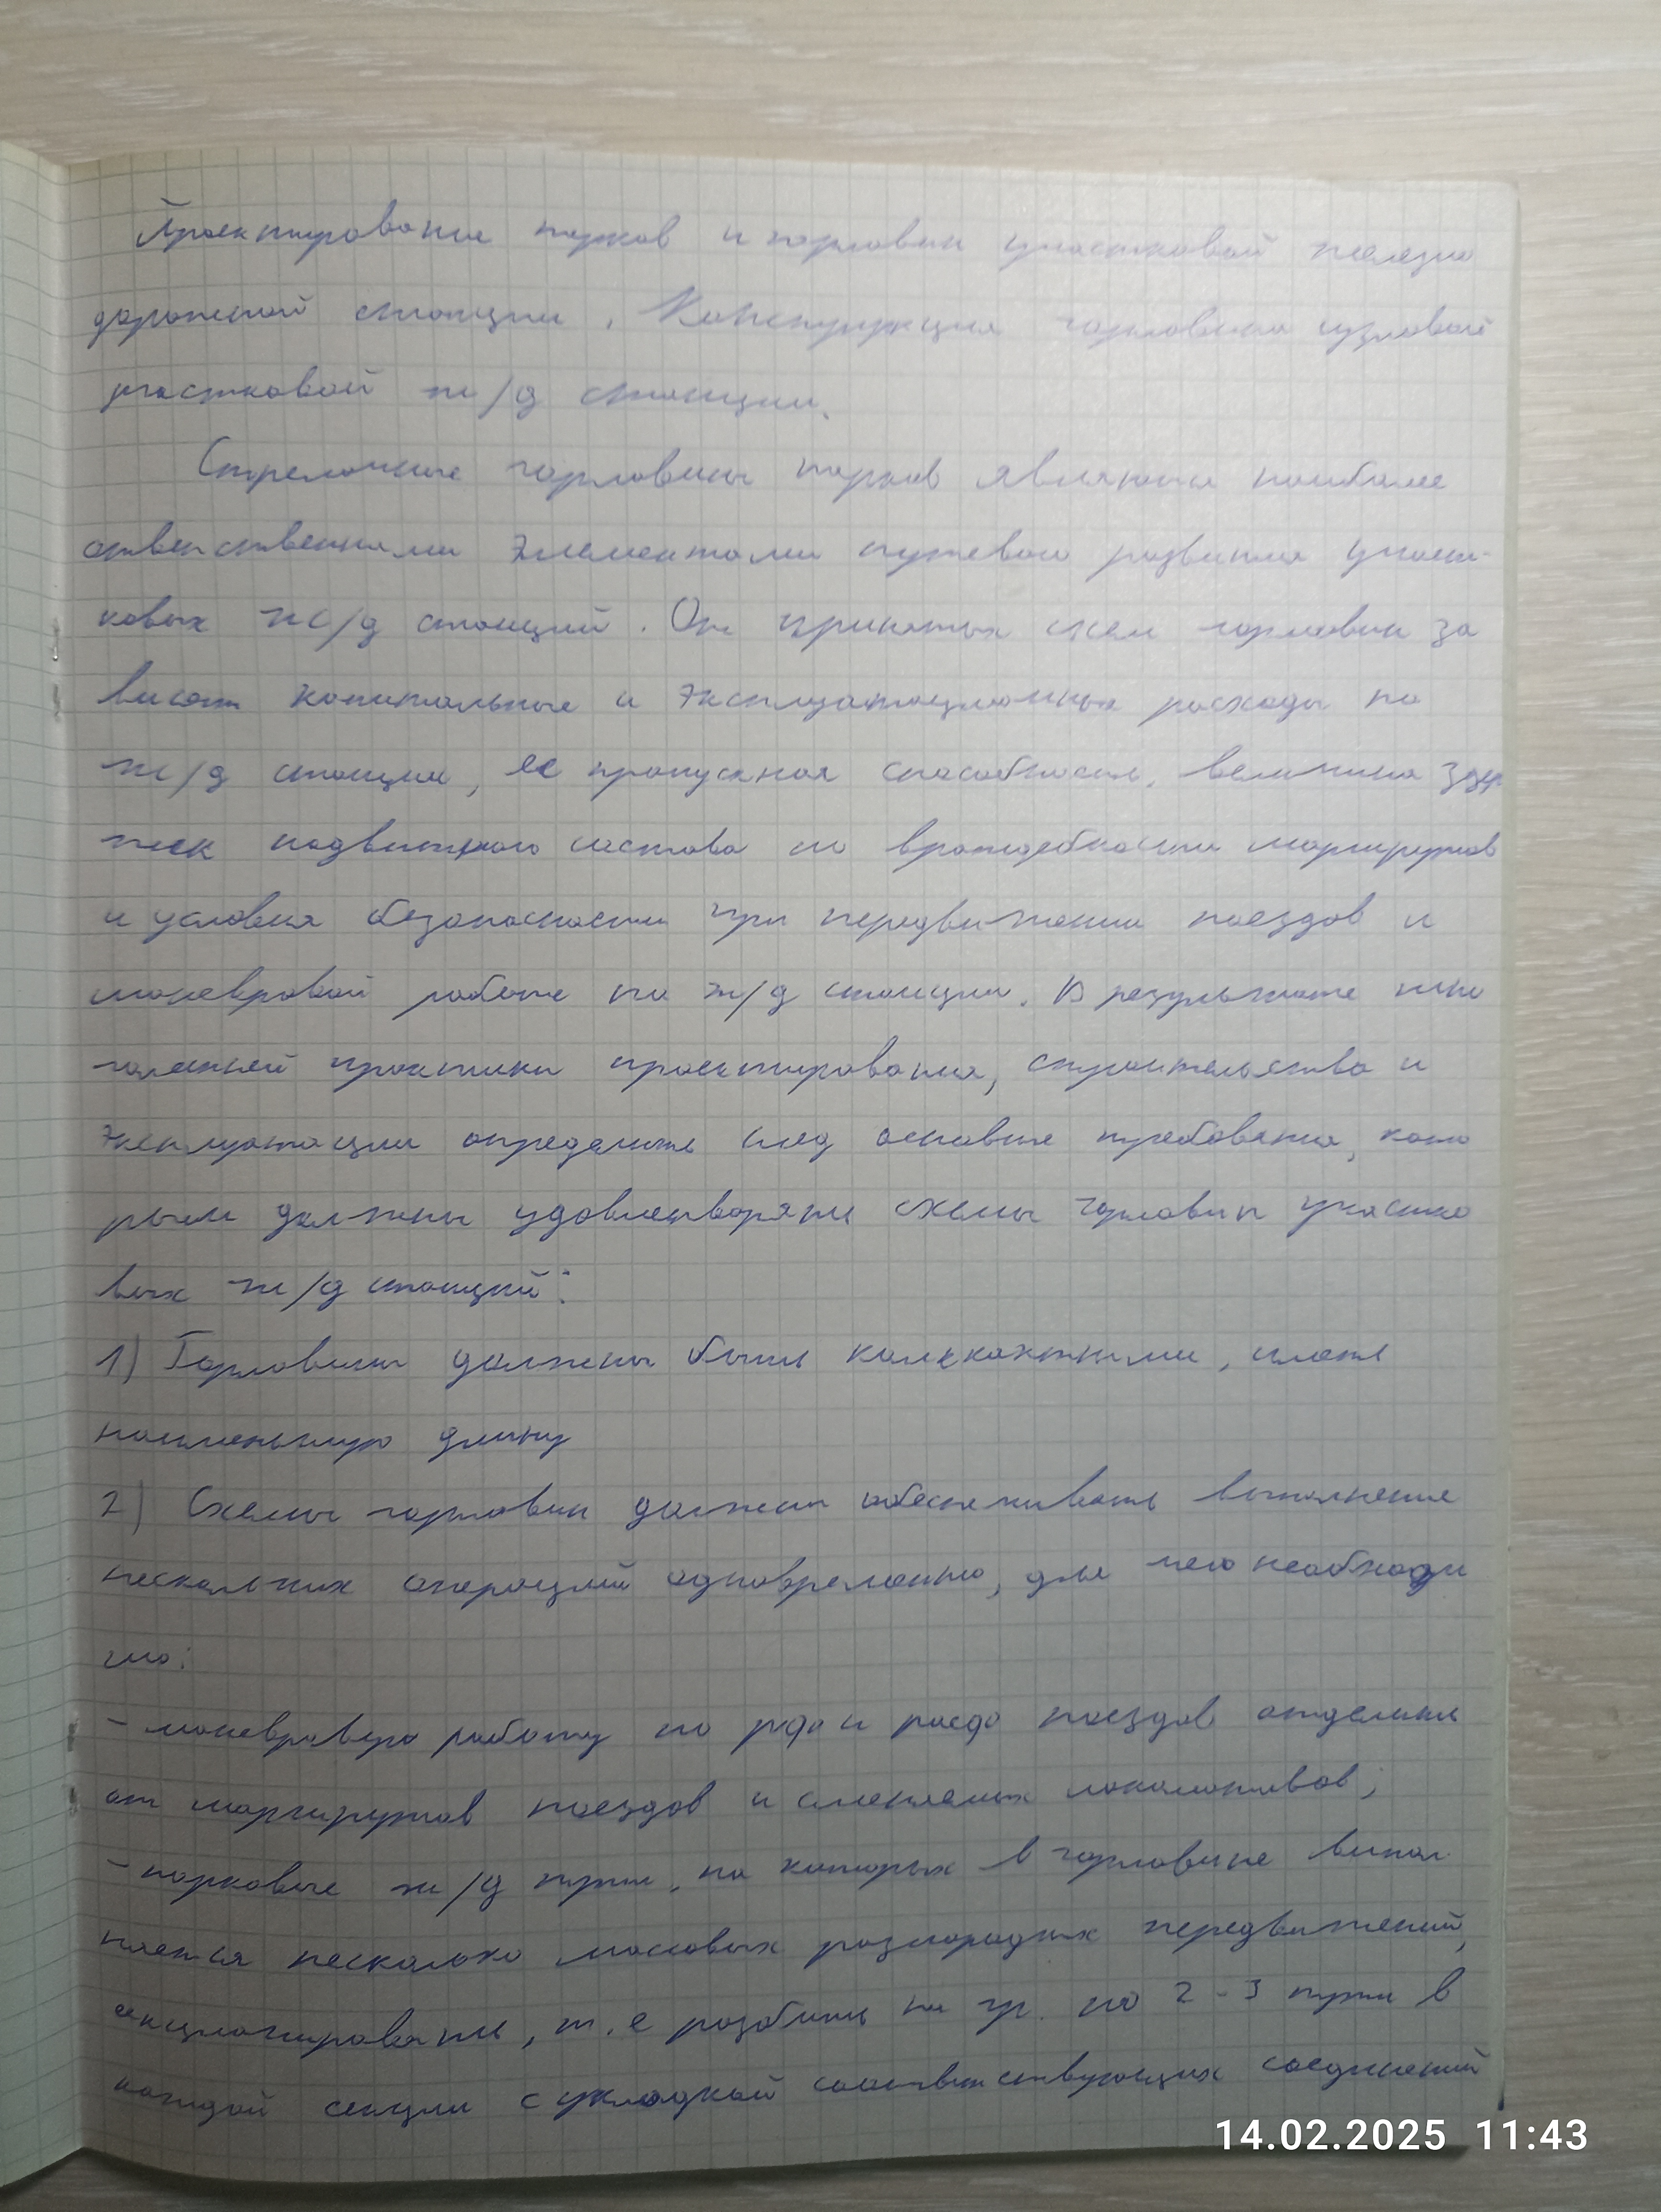 Проектирование парков и горловин участковой железно
дорожной станции. Конструкция горловины узловой
участковой ж/д станции.
Стрелочные горловины парков являются наиболее
ответственными элементами путевого развития участ-
ковых ж/д станций. От принятых схем горловин за
висят капитальные и эксплуатационные расходы по
ж/д станции, ее пропускная способность, величина задер
жек подвижного состава по враждебности маршрутов
и условия безопасности при передвижении поездов и
маневровой работе на ж/д станции. В результате мно
голетней практики проектирования, строительства и
эксплуатации определить след основные требования, кото
рым должны удовлетворять схемы горловин участко
вых ж/д станций:
1) Горловины должны быть компактными, иметь
наименьшую длину
2) Схемы горловин должны обеспечивать выполнение
нескольких операций одновременно, для чего необходи
мо:
- маневровую работу по рфо и расфо поездов отделить
от маршрутов поездов и сменяемых локомотивов;
- парковые ж/д пути, на которых в горловине выпол
няется несколько массовых разнородных передвижений,
секционировать, т.е разбить на гр. по 2-3 пути в
каждой секции с укладкой соответствующих соединений
14.02.2025 11:43